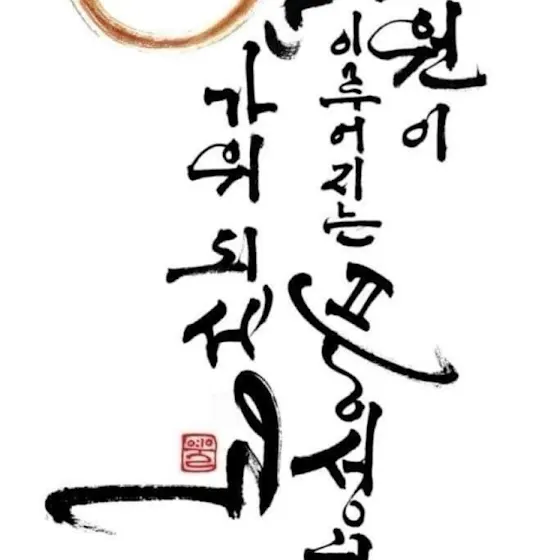 원이
이루어지는 풍성
가위 되세요